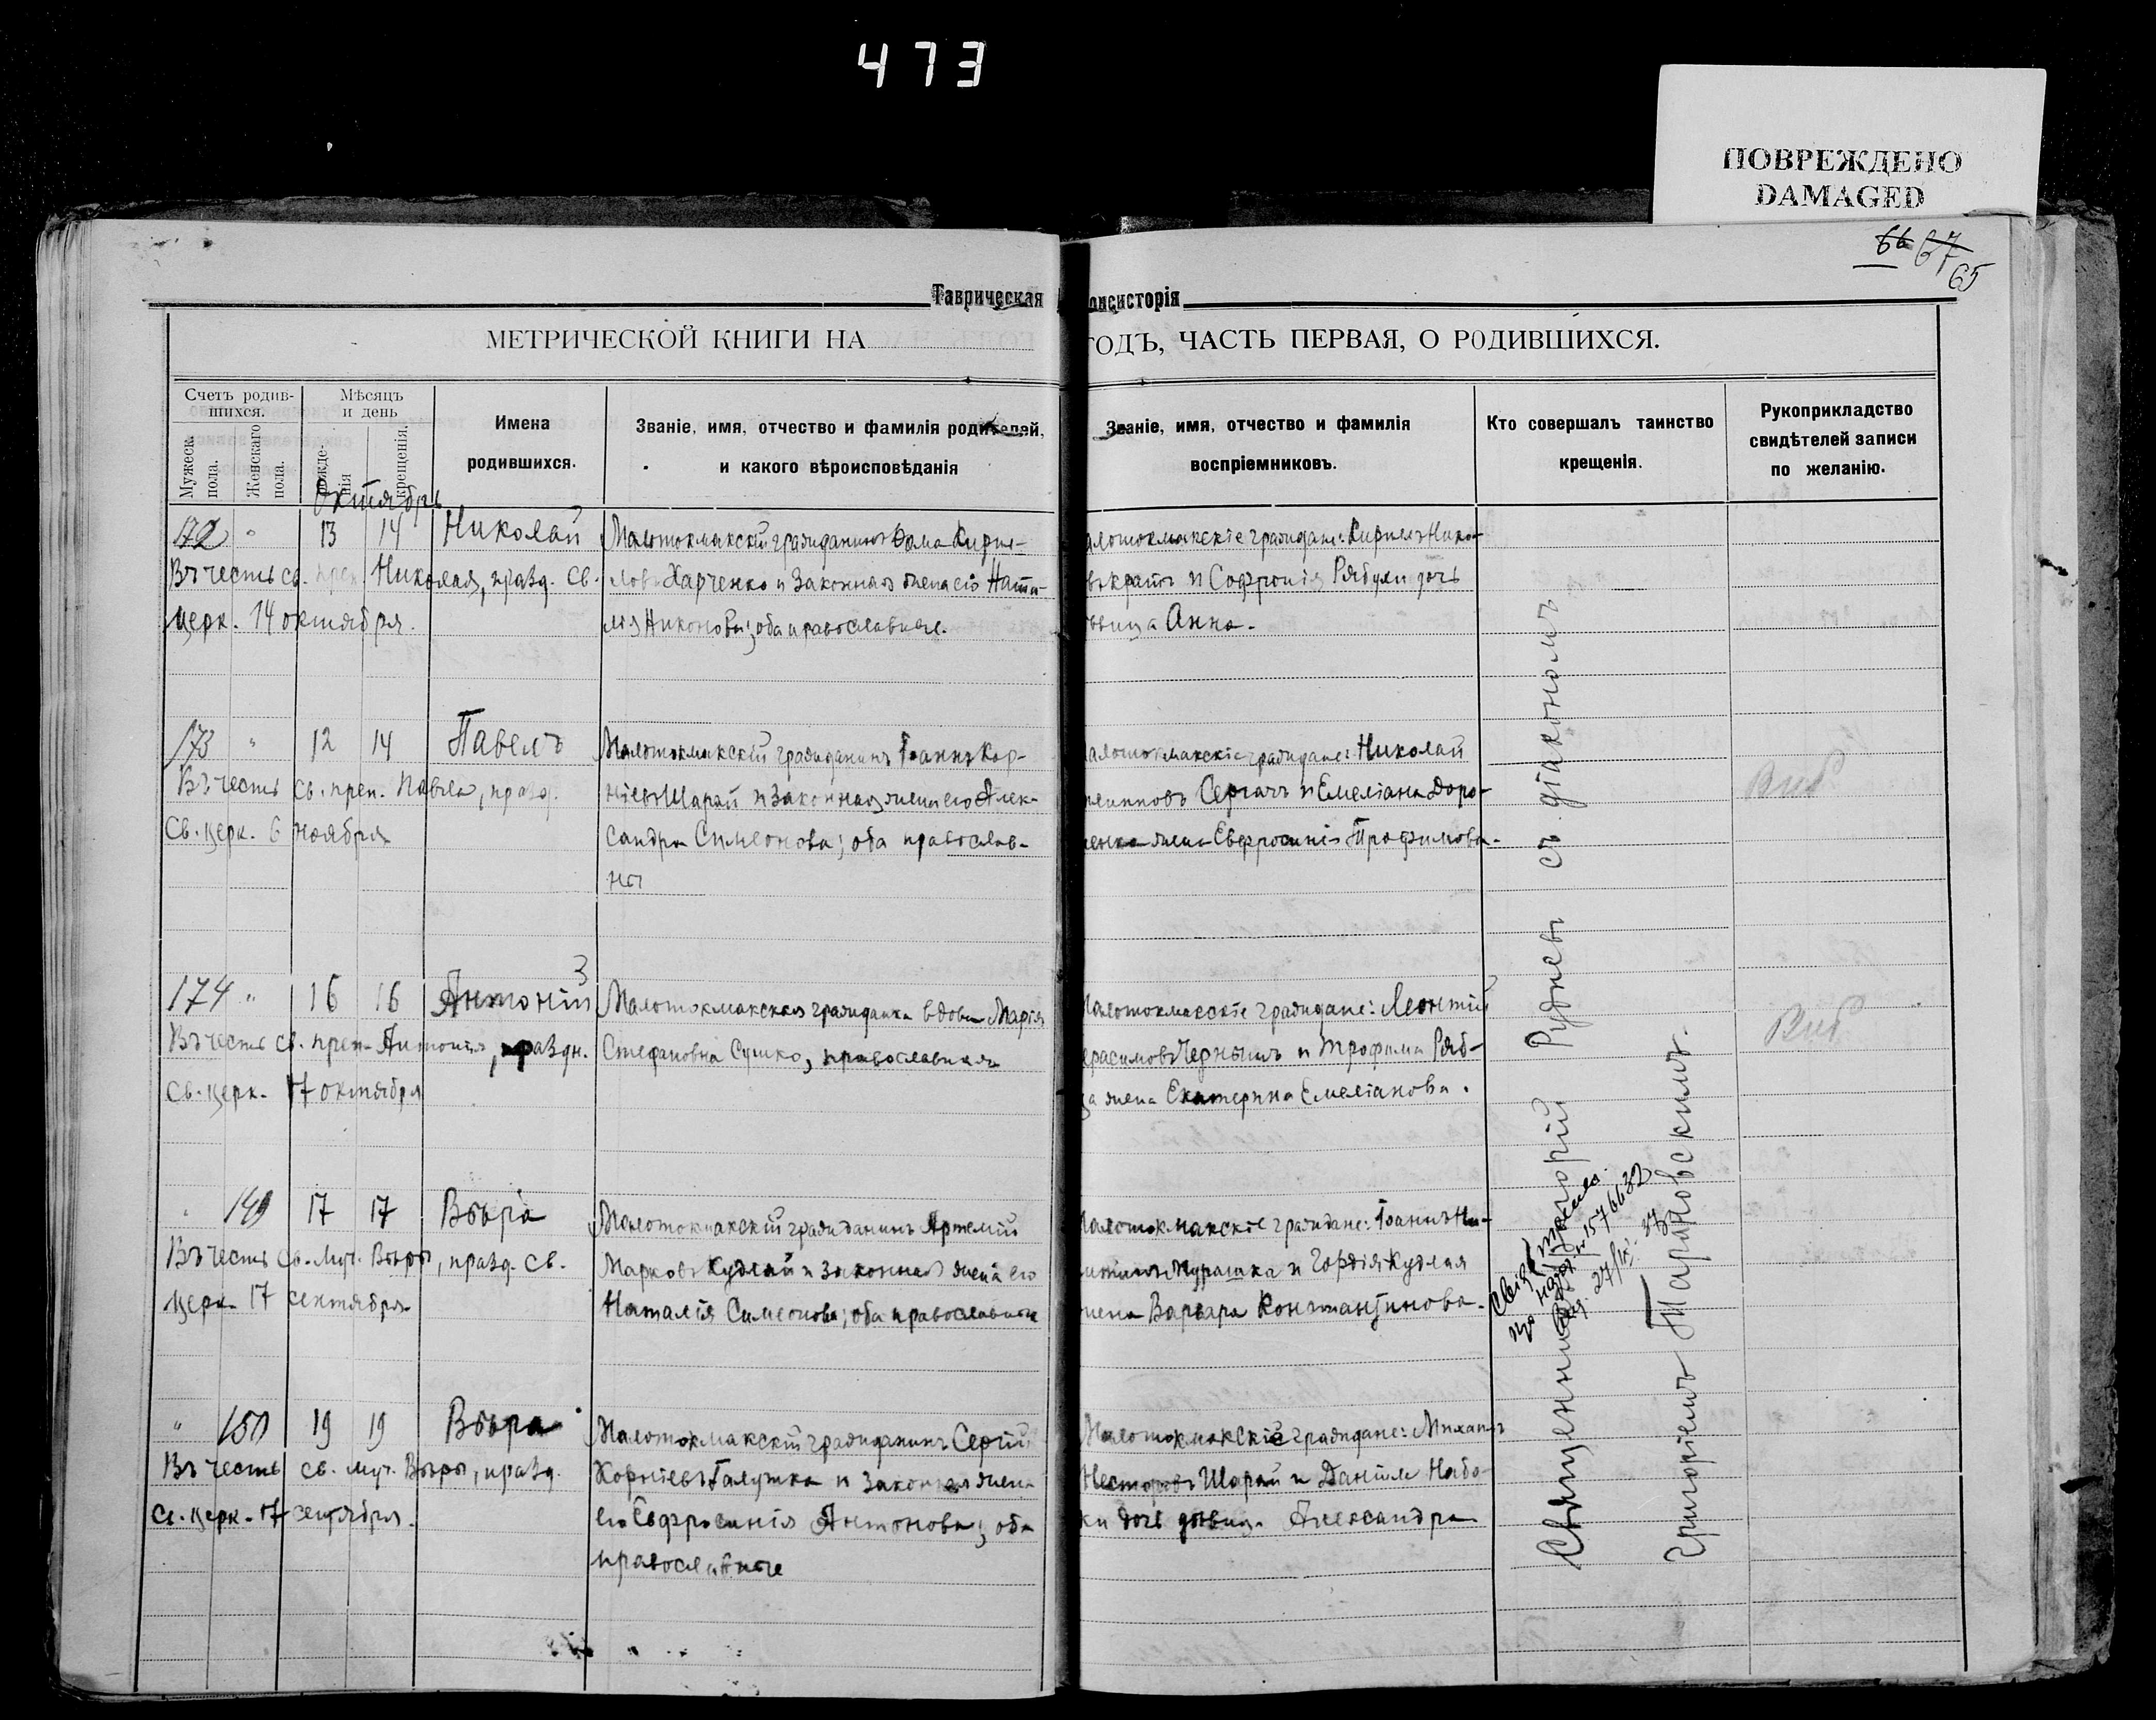 473
ПОВРЕЖДЕНО
DAMAGED
66 67
65
Таврическая
онсисторія
МЕТРИЧЕСКОЙ КНИГИ НА
ГОДЪ, ЧАСТЬ ПЕРВАЯ, О РОДИВШИХСЯ.
Счетъ родив-
шихся.
Мужеск. пола.
Женскаго пола.
Мѣсяцъ
и день
рожде-
нія
крещенія.
Имена
родившихся.
Званіе, имя, отчество и фамилія родителей,
и какого вѣроисповѣданія
Званіе, имя, отчество и фамилія
воспріемниковъ.
Кто совершалъ таинство
крещенія.
Рукоприкладство
свидѣтелей записи
по желанію.
Октябрь
172 " 13 14 Николай
Въ честь св. преп. Николая, празд. св.
церк. 14 октября.
Малотокмакскій гражданинъ Ѳома Кирил-
ловъ Харченко и законная жена его Ната-
лія Никонова; оба православные.
алотокмакскіе граждане: Кириллъ Нико-
и Софронія Рябухи дочь
вица Анна.
173 " 12 14 Павелъ
Въ честь св. преп. Павла, празд.
св. церк. 6 ноября
Малотокмакскій гражданинъ Іоаннъ Кор-
ніевъ Шарай и законная жена его Алек-
сандра Симеонова; оба православ-
ны
алотокмакскіе граждане: Николай
липповъ Сергачъ и Емеліана Доро-
енка жена Евфросинія Трофимова.
Вид
174 " 16 16 Антоній 3
Въ честь св. преп. Антонія, праздн.
св. церк. 17 октября
Малотокмакская гражданка вдова Марія
Стефановна Сушко, православная
Малотокмакскіе граждане: Леонтій
ерасимовъ Чернышъ и Трофима Ряб-
ца жена Екатерина Емеліанова.
Вид
" 149 17 17 Вѣра
Въ честь св. муч. Вѣры, празд. св.
церк. 17 сентября
Малотокмакскій гражданинъ Артемій
Марковъ Кудлай и законная жена его
Наталія Симеонова; оба православные
Малотокмакскіе граждане: Іоаннъ Ни-
китинъ Мурашка и Гордія Кудлая
жена Варвара Константинова.
" 150 19 19 Вѣра
Въ честь св. муч. Вѣры, празд.
св. церк. 17 сентября.
Малотокмакскій гражданинъ Сергій
Корніевъ Галушка и законная жена
его Евфросинія Антонова; оба
православные
Малотокмакскіе граждане: Михаилъ
Несторовъ Шарай и Даніила Набо-
ки дочь дѣвица Александра
Священникъ Григорій Рудневъ съ діакономъ
Григоріемъ Тарановскимъ.
№ 1576632
27